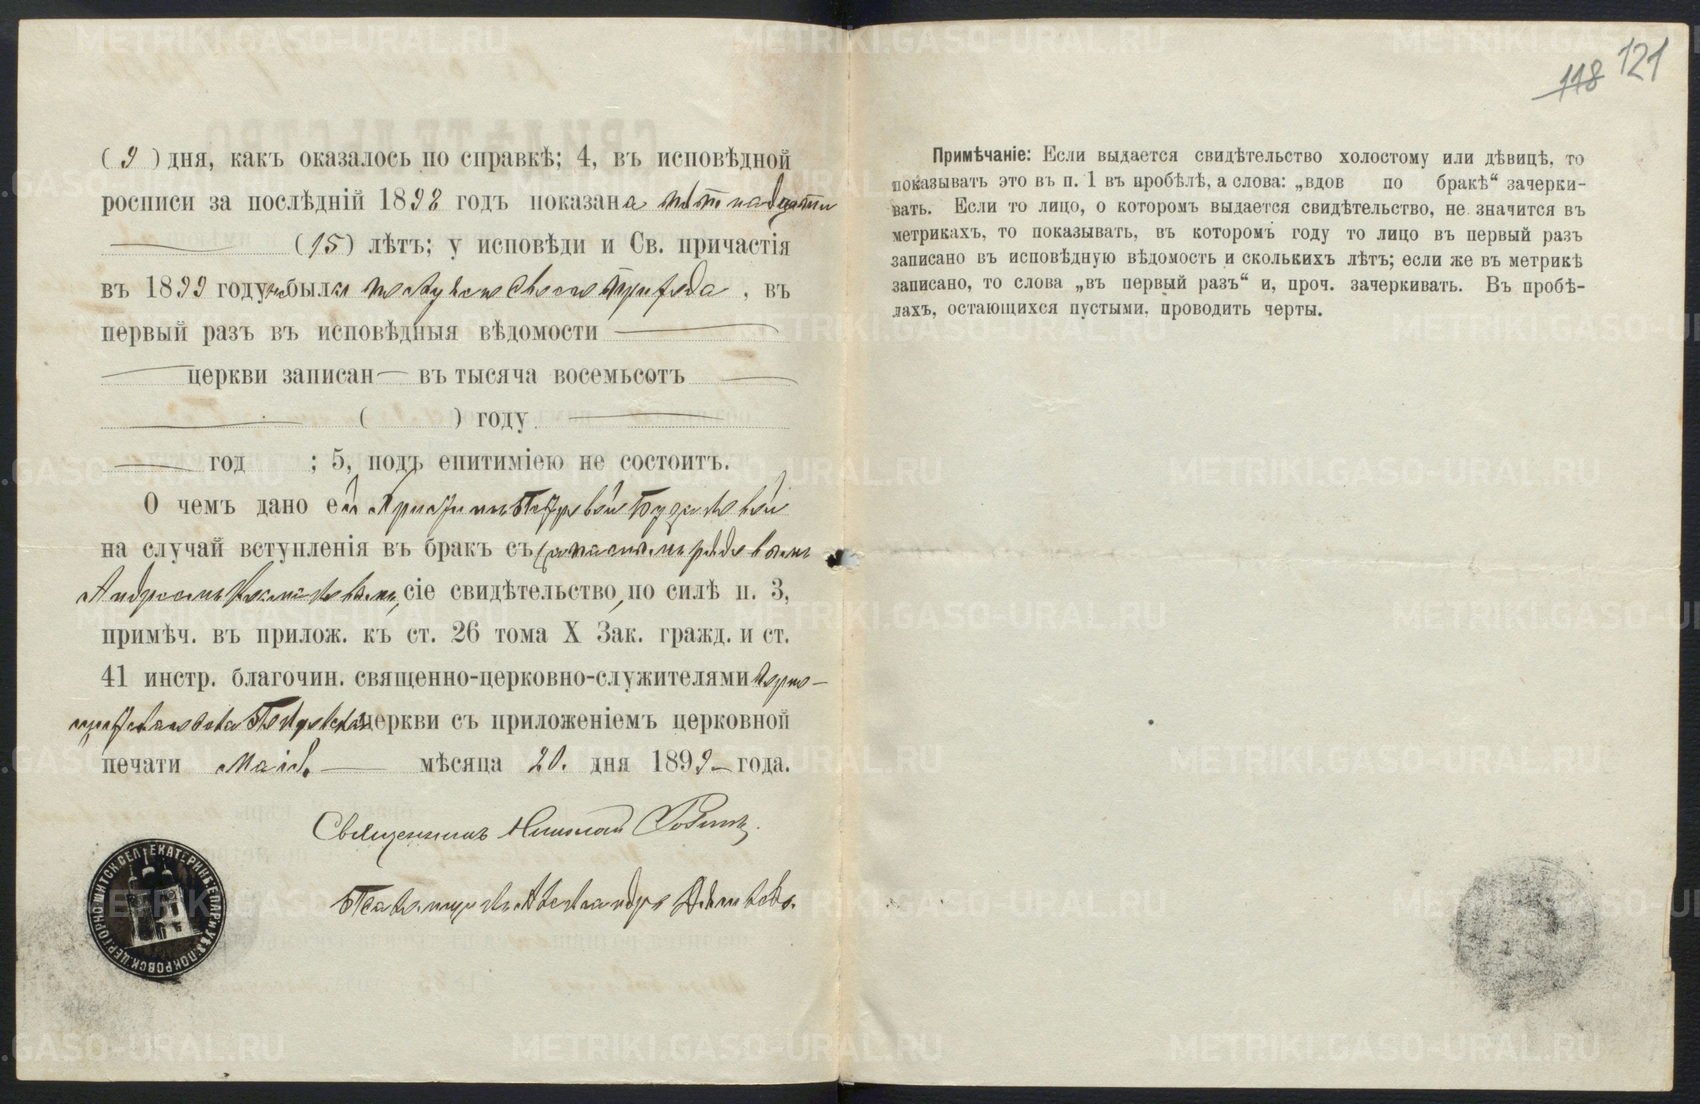 118 121
( 9 ) дня, какъ оказалось по справкѣ; 4, въ исповѣдной
росписи за послѣдній 1898 годъ показана пятнадцати
(15) лѣтъ; у исповѣди и Св. причастія
въ 1899 году не была по своего прихода, въ
первый разъ въ исповѣдныя вѣдомости
церкви записан въ тысяча восемьсотъ
( ) году
год ; 5, подъ епитиміею не состоитъ.
О чемъ дано ей
на случай вступленія въ брак съ запаснымъ рядовымъ
Андреемъ сіе свидѣтельство, по силѣ п. 3,
примѣч. въ прилож. къ ст. 26 тома X Зак. гражд. и ст.
41 инстр. благочин. священно-церковно-служителями Горно-
щитскаго села Покровской церкви съ приложеніемъ церковной
печати Маія мѣсяца 20. дня 1899 года.
Священникъ Николай
Псаломщикъ Александръ
ЦЕР. ГОРНОЩИТСК. СЕЛ. ЕКАТЕРИНБ. ЕПАР. И УѢЗ. ПОКРОВСК.
Примѣчаніе: Если выдается свидѣтельство холостому или дѣвицѣ, то
показывать это въ п. 1 въ пробѣлѣ, а слова: „вдов по бракѣ“ зачерки-
вать. Если то лицо, о которомъ выдается свидѣтельство, не значится въ
метрикахъ, то показывать, въ которомъ году то лицо въ первый разъ
записано въ исповѣдную вѣдомость и сколькихъ лѣтъ; если же въ метрикѣ
записано, то слова „въ первый разъ“ и, проч. зачеркивать. Въ пробѣ-
лахъ, остающихся пустыми, проводить черты.
METRIKI.GASO-URAL.RU